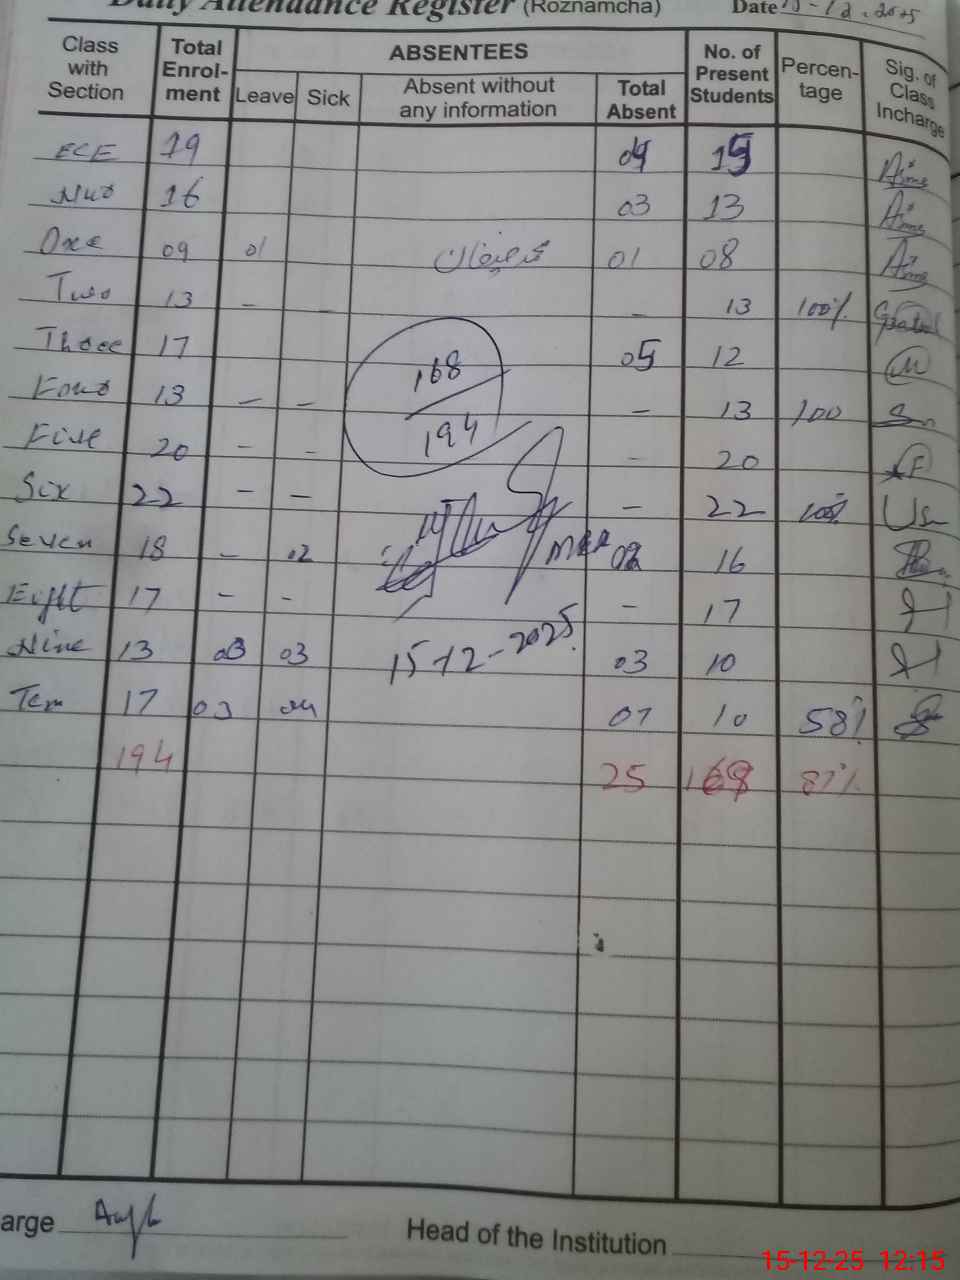 Daily Attendance Register (Roznamcha) Date 15-12-2025
Class with Section Total Enrol-ment ABSENTEES No. of Present Students Percen-tage Sig. of Class Incharge
Leave Sick Absent without any information Total Absent
ECE 19 04 15
Nur 16 03 13
One 09 01 01 08
Two 13 - - - 13 100%
Three 17 05 12
Four 13 - - - 13 100
Five 20 - - - 20
Six 22 - - - 22 100%
Seven 18 - 02 02 16
Eight 17 - - - 17
Nine 13 03 03 03 10
Ten 17 03 04 07 10 58%
194 25 169 87%
168
194
15-12-2025
arge
Head of the Institution
15-12-25 12:15